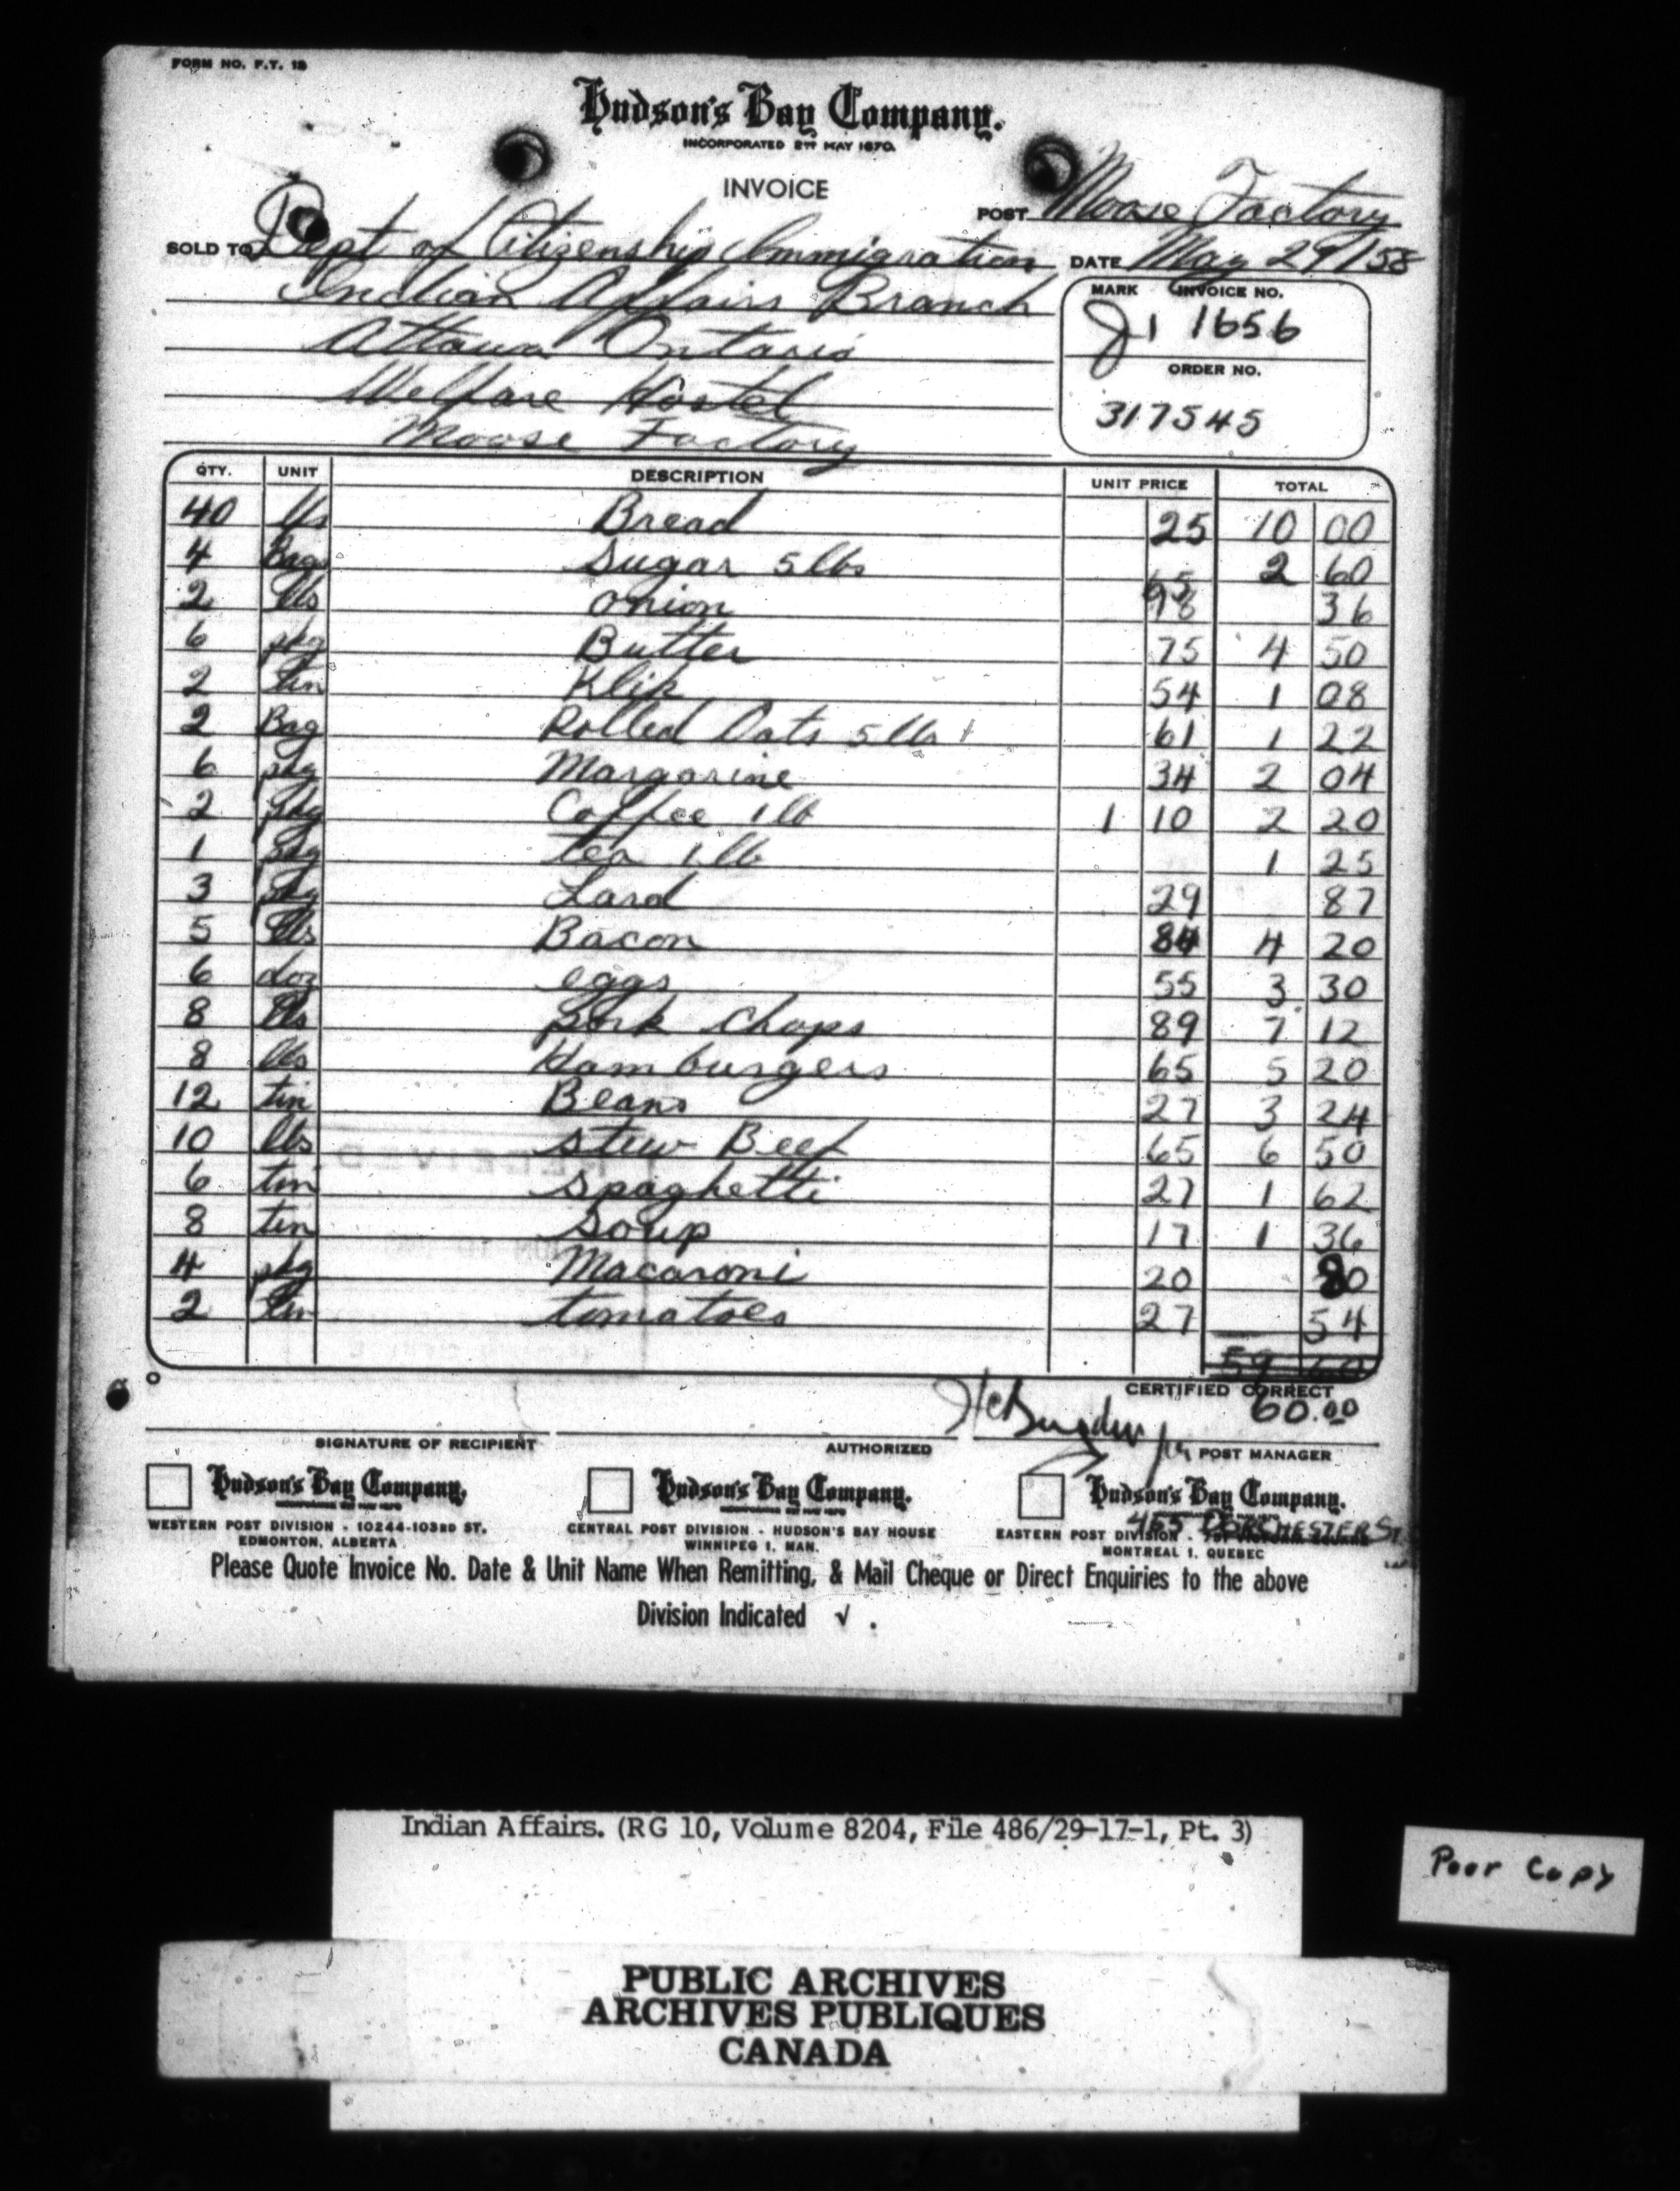 FORM NO. F.T. 12
Hudson's Bay Company.
INCORPORATED 2ND MAY 1670.
INVOICE
POST Moose Factory
SOLD TO Dept of Citizenship & Immigration DATE May 29/58
Indian Affairs Branch
Ottawa Ontario
Welfare Hostel
Moose Factory
MARK INVOICE NO.
J1 1656
ORDER NO.
317545
QTY. UNIT DESCRIPTION UNIT PRICE TOTAL
40 lfs Bread 25 10 00
4 Bags Sugar 5 lbs 65 2 60
2 lbs onion 18 36
6 pkg Butter 75 4 50
2 tin Klik 54 1 08
2 Bag Rolled Oats 5 lbs 61 1 22
6 pkg Margarine 34 2 04
2 pkg Coffee 1 lb 1 10 2 20
1 pkg tea 1 lb 1 25
3 pkg Lard 29 87
5 lbs Bacon 84 4 20
6 doz eggs 55 3 30
8 lbs pork Chops 89 7 12
8 lbs Hamburgers 65 5 20
12 tin Beans 27 3 24
10 lbs stew Beef 65 6 50
6 tin Spaghetti 27 1 62
8 tin Soup 17 1 36
4 pkg Macaroni 20 80
2 tin tomatoes 27 54
59 60
CERTIFIED CORRECT
60.00
SIGNATURE OF RECIPIENT AUTHORIZED POST MANAGER
Hudson's Bay Company. Hudson's Bay Company. Hudson's Bay Company.
455 DORCHESTER ST.
WESTERN POST DIVISION - 10244-103RD ST. CENTRAL POST DIVISION - HUDSON'S BAY HOUSE EASTERN POST DIVISION
EDMONTON, ALBERTA WINNIPEG 1, MAN. MONTREAL 1, QUEBEC
Please Quote Invoice No. Date & Unit Name When Remitting, & Mail Cheque or Direct Enquiries to the above
Division Indicated √ .
Indian Affairs. (RG 10, Volume 8204, File 486/29-17-1, Pt. 3)
Poor Copy
PUBLIC ARCHIVES
ARCHIVES PUBLIQUES
CANADA